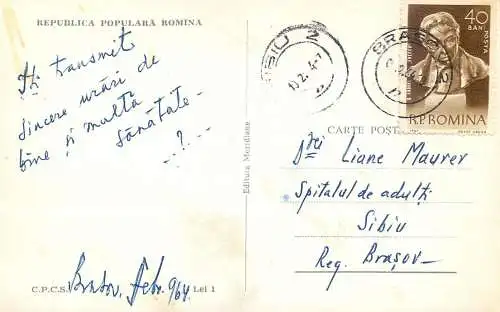 REPUBLICA POPULARA ROMINA
Iți transmit
sincere urări de
bine și multă
sănătate–
...?...
C.P.C.S.
Brașov, Febr. 9/64
Lei 1
Editura Meridiane
SIBIU 2
BRASOV 2
40
BANI
POSTA
R.P.ROMINA
CARTE POȘT
D-rei Liane Maurer
Spitalul de adulți
Sibiu
Reg. Brașov–